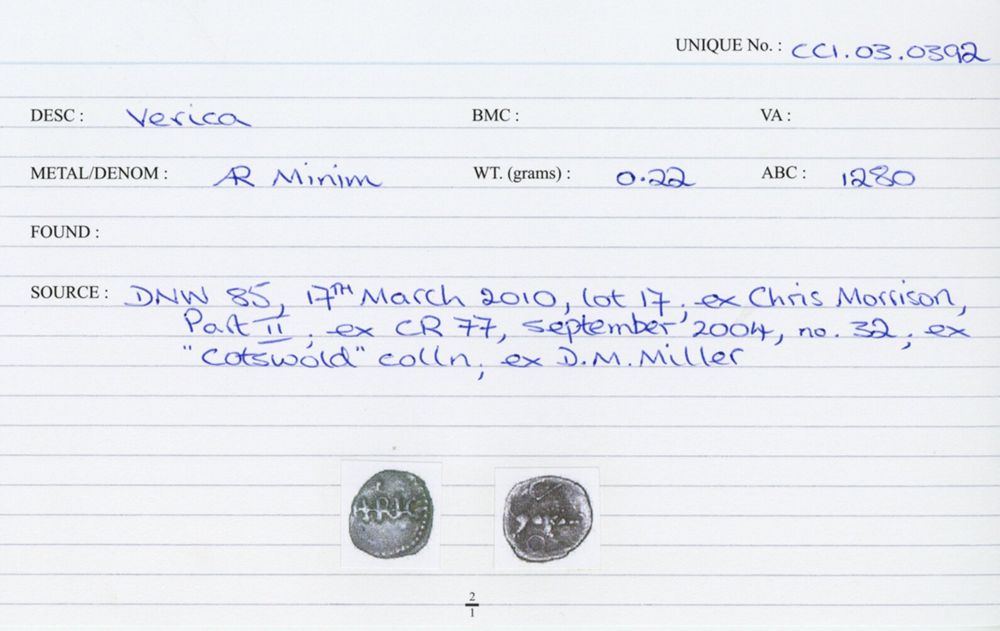 UNIQUE No. : CCI.03.0392
DESC : Verica BMC : VA :
METAL/DENOM : AR Minim WT. (grams) : 0.22 ABC : 1280
FOUND :
SOURCE : DNW 85, 17TH March 2010, lot 17; ex Chris Morrison,
Part II; ex CR 77, September 2004, no. 32; ex
"Cotswold" colln; ex D.M. Miller
2
1